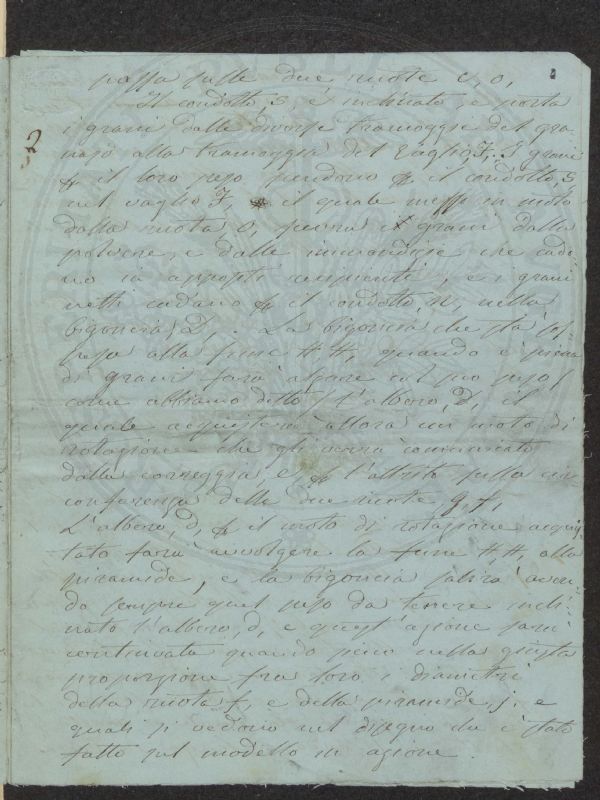 passa sulle due ruote e, o,
Il condotto, S, è inchinato e porta
i grani dalle diverse tramoggie del gra-
najo alla tramoggia del Vaglio, I. I grani
2
p il loro peso pendono p il condotto, S
nel vaglio I, il quale messo in moto
dalla ruota O, i grani dalla
polvere, e dalle immondizie che cado-
no in appositi recipienti, e i grani
netti cadano p il condotto, N, nella
bigoncia, D,. La bigoncia che sta sos-
pesa alla fune H H, quando è piena
di grani farà alzare col suo peso
come abbiamo detto l'albero, D, il
quale acquisterà allora un moto di
rotazione che gli verrà comunicato
dalla correggia, e, p l'attrito sulla cir-
conferenza delle due ruote g, f,
L'albero, D, p il moto di rotazione acquis-
tato farà avvolgere la fune H H, alla
piramide, e la bigoncia salirà aven-
do sempre quel peso da tenere inchi-
nato l'albero, D, e quest'azione sarà
continuata quando però nella giusta
proporzione fra loro i diametri
della ruota f, e della piramide, j, e
quali si vedono nel disegno che è stato
fatto sul modello in azione.